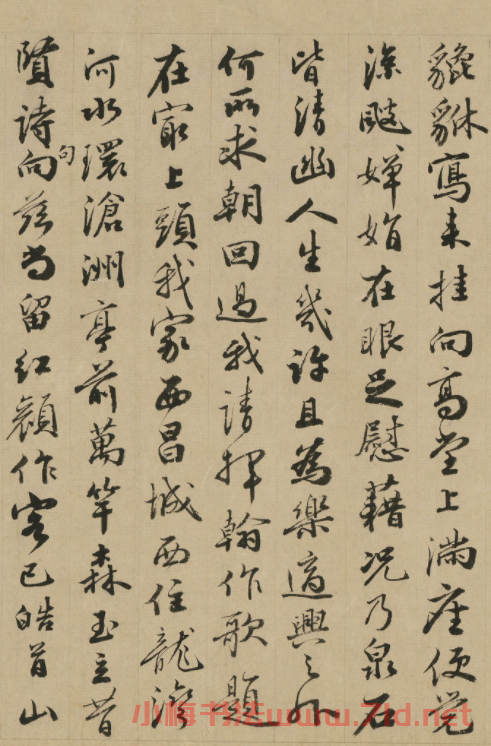 貔貅寫来挂向高堂上滿座便覺
涼颼嬋娟在眼足慰藉况乃泉石
皆清幽人生幾許且為樂適興之外
何所求朝回過我請揮翰作歌題
在最上頭我家西昌城西住龍灣
河水環滄洲亭前萬竿森玉立昔
賢詩向茲尚留紅顏作客已皓首山
句
小梅书法www.7td.net